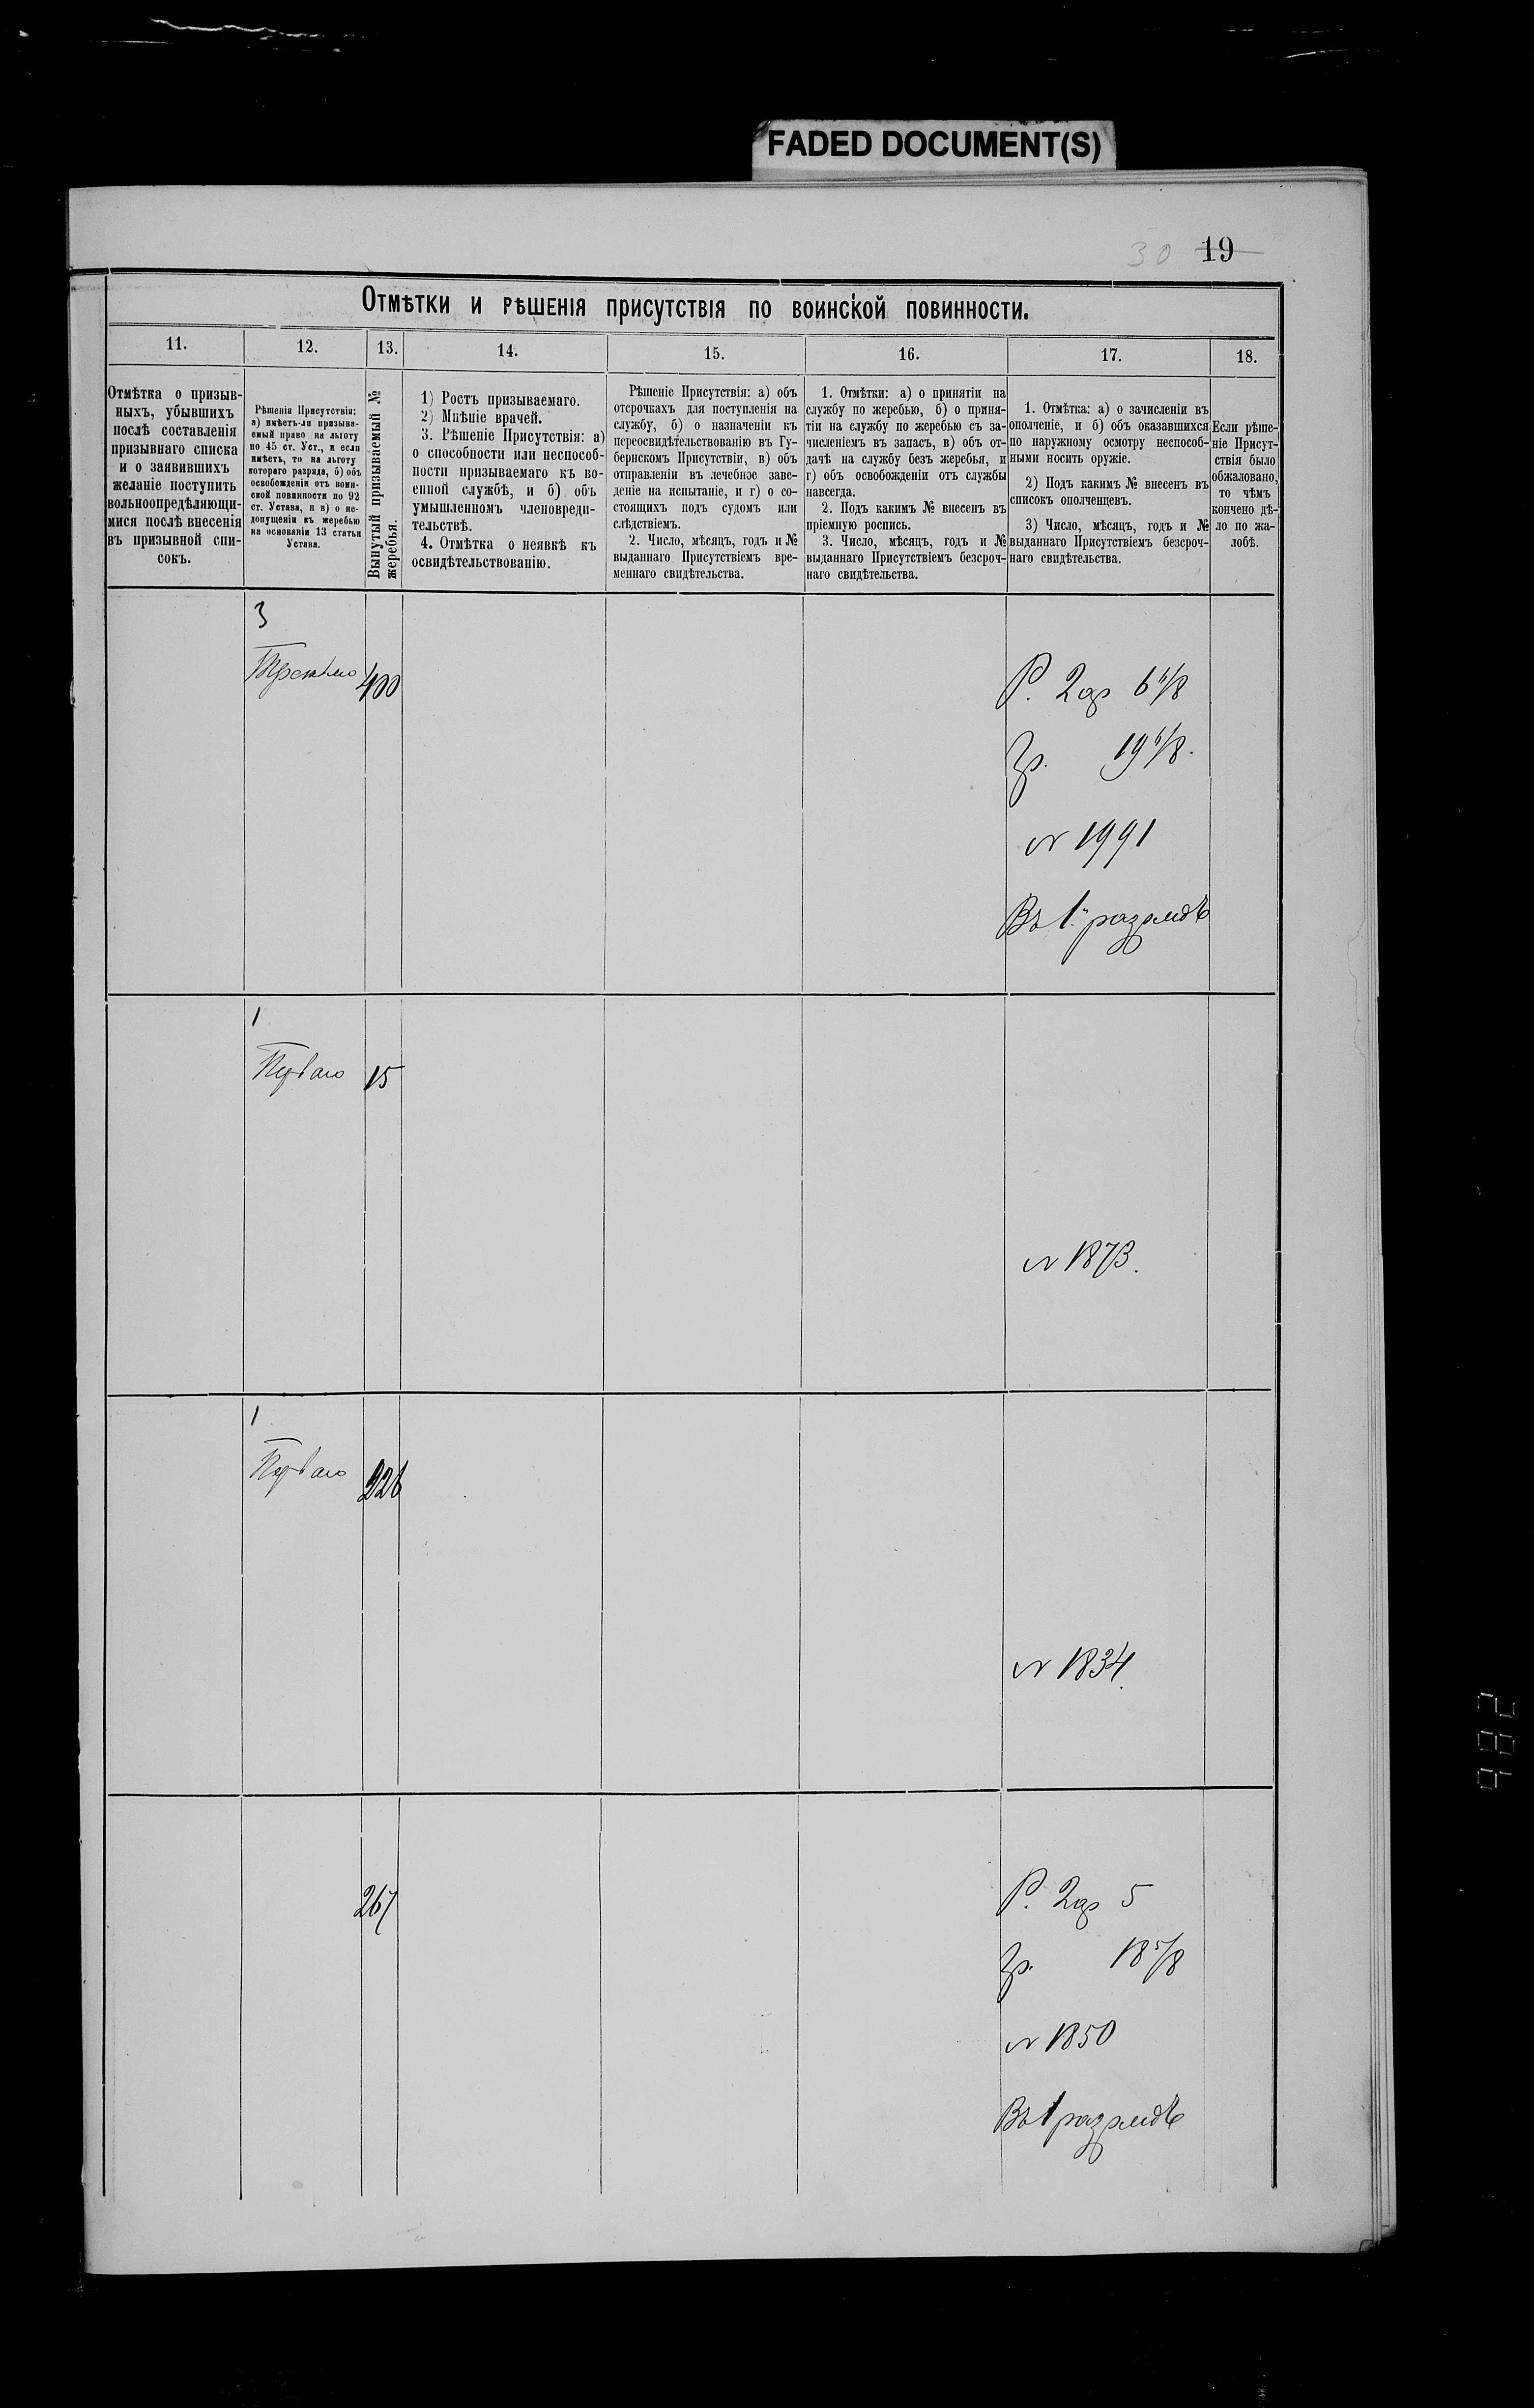 FADED DOCUMENT(S)
30 19
Отмѣтки и рѣшенія присутствія по воинской повинности.
11. 12. 13. 14. 15. 16. 17. 18.
Отмѣтка о призыв-
ныхъ, убывшихъ
послѣ составленія
призывнаго списка
и о заявившихъ
желаніе поступить
вольноопредѣляющи-
мися послѣ внесенія
въ призывной спи-
сокъ.
Рѣшенія Присутствія:
а) имѣетъ-ли призыва-
емый право на льготу
по 45 ст. Уст., и если
имѣетъ, то на льготу
котораго разряда, б) объ
освобожденіи отъ воин-
ской повинности по 92
ст. Устава, и в) о не-
допущеніи къ жеребью
на основаніи 13 статьи
Устава.
Вынутый призываемый №
жеребья.
1) Ростъ призываемаго.
2) Мнѣніе врачей.
3. Рѣшеніе Присутствія: а)
о способности или неспособ-
ности призываемаго къ во-
енной службѣ, и б) объ
умышленномъ членовреди-
тельствѣ.
4. Отмѣтка о неявкѣ къ
освидѣтельствованію.
Рѣшеніе Присутствія: а) объ
отсрочкахъ для поступленія на
службу, б) о назначеніи къ
переосвидѣтельствованію въ Гу-
бернскомъ Присутствіи, в) объ
отправленіи въ лечебное заве-
деніе на испытаніе, и г) о со-
стоящихъ подъ судомъ или
слѣдствіемъ.
2. Число, мѣсяцъ, годъ и №
выданнаго Присутствіемъ вре-
меннаго свидѣтельства.
1. Отмѣтки: а) о принятіи на
службу по жеребью, б) о приня-
тіи на службу по жеребью съ за-
численіемъ въ запасъ, в) объ от-
дачѣ на службу безъ жеребья, и
г) объ освобожденіи отъ службы
навсегда.
2. Подъ какимъ № внесенъ въ
пріемную роспись.
3. Число, мѣсяцъ, годъ и №
выданнаго Присутствіемъ безсроч-
наго свидѣтельства.
1. Отмѣтка: а) о зачисленіи въ
ополченіе, и б) объ оказавшихся
по наружному осмотру неспособ-
ными носить оружіе.
2) Подъ какимъ № внесенъ въ
списокъ ополченцевъ.
3) Число, мѣсяцъ, годъ и №
выданнаго Присутствіемъ безсроч-
наго свидѣтельства.
Если рѣше-
ніе Присут-
ствія было
обжаловано,
то чѣмъ
кончено дѣ-
ло по жа-
лобѣ.
3
Третьяго 400
Р. 2 ар 6 6/8
Гр. 19 6/8.
№ 1991
Въ 1й разрядѣ
1
Перваго 15
№ 1873.
1
Перваго 226
№ 1834.
267
Р. 2 ар 5
Гр. 18 5/8
№ 1850
Въ 1 разрядѣ
982